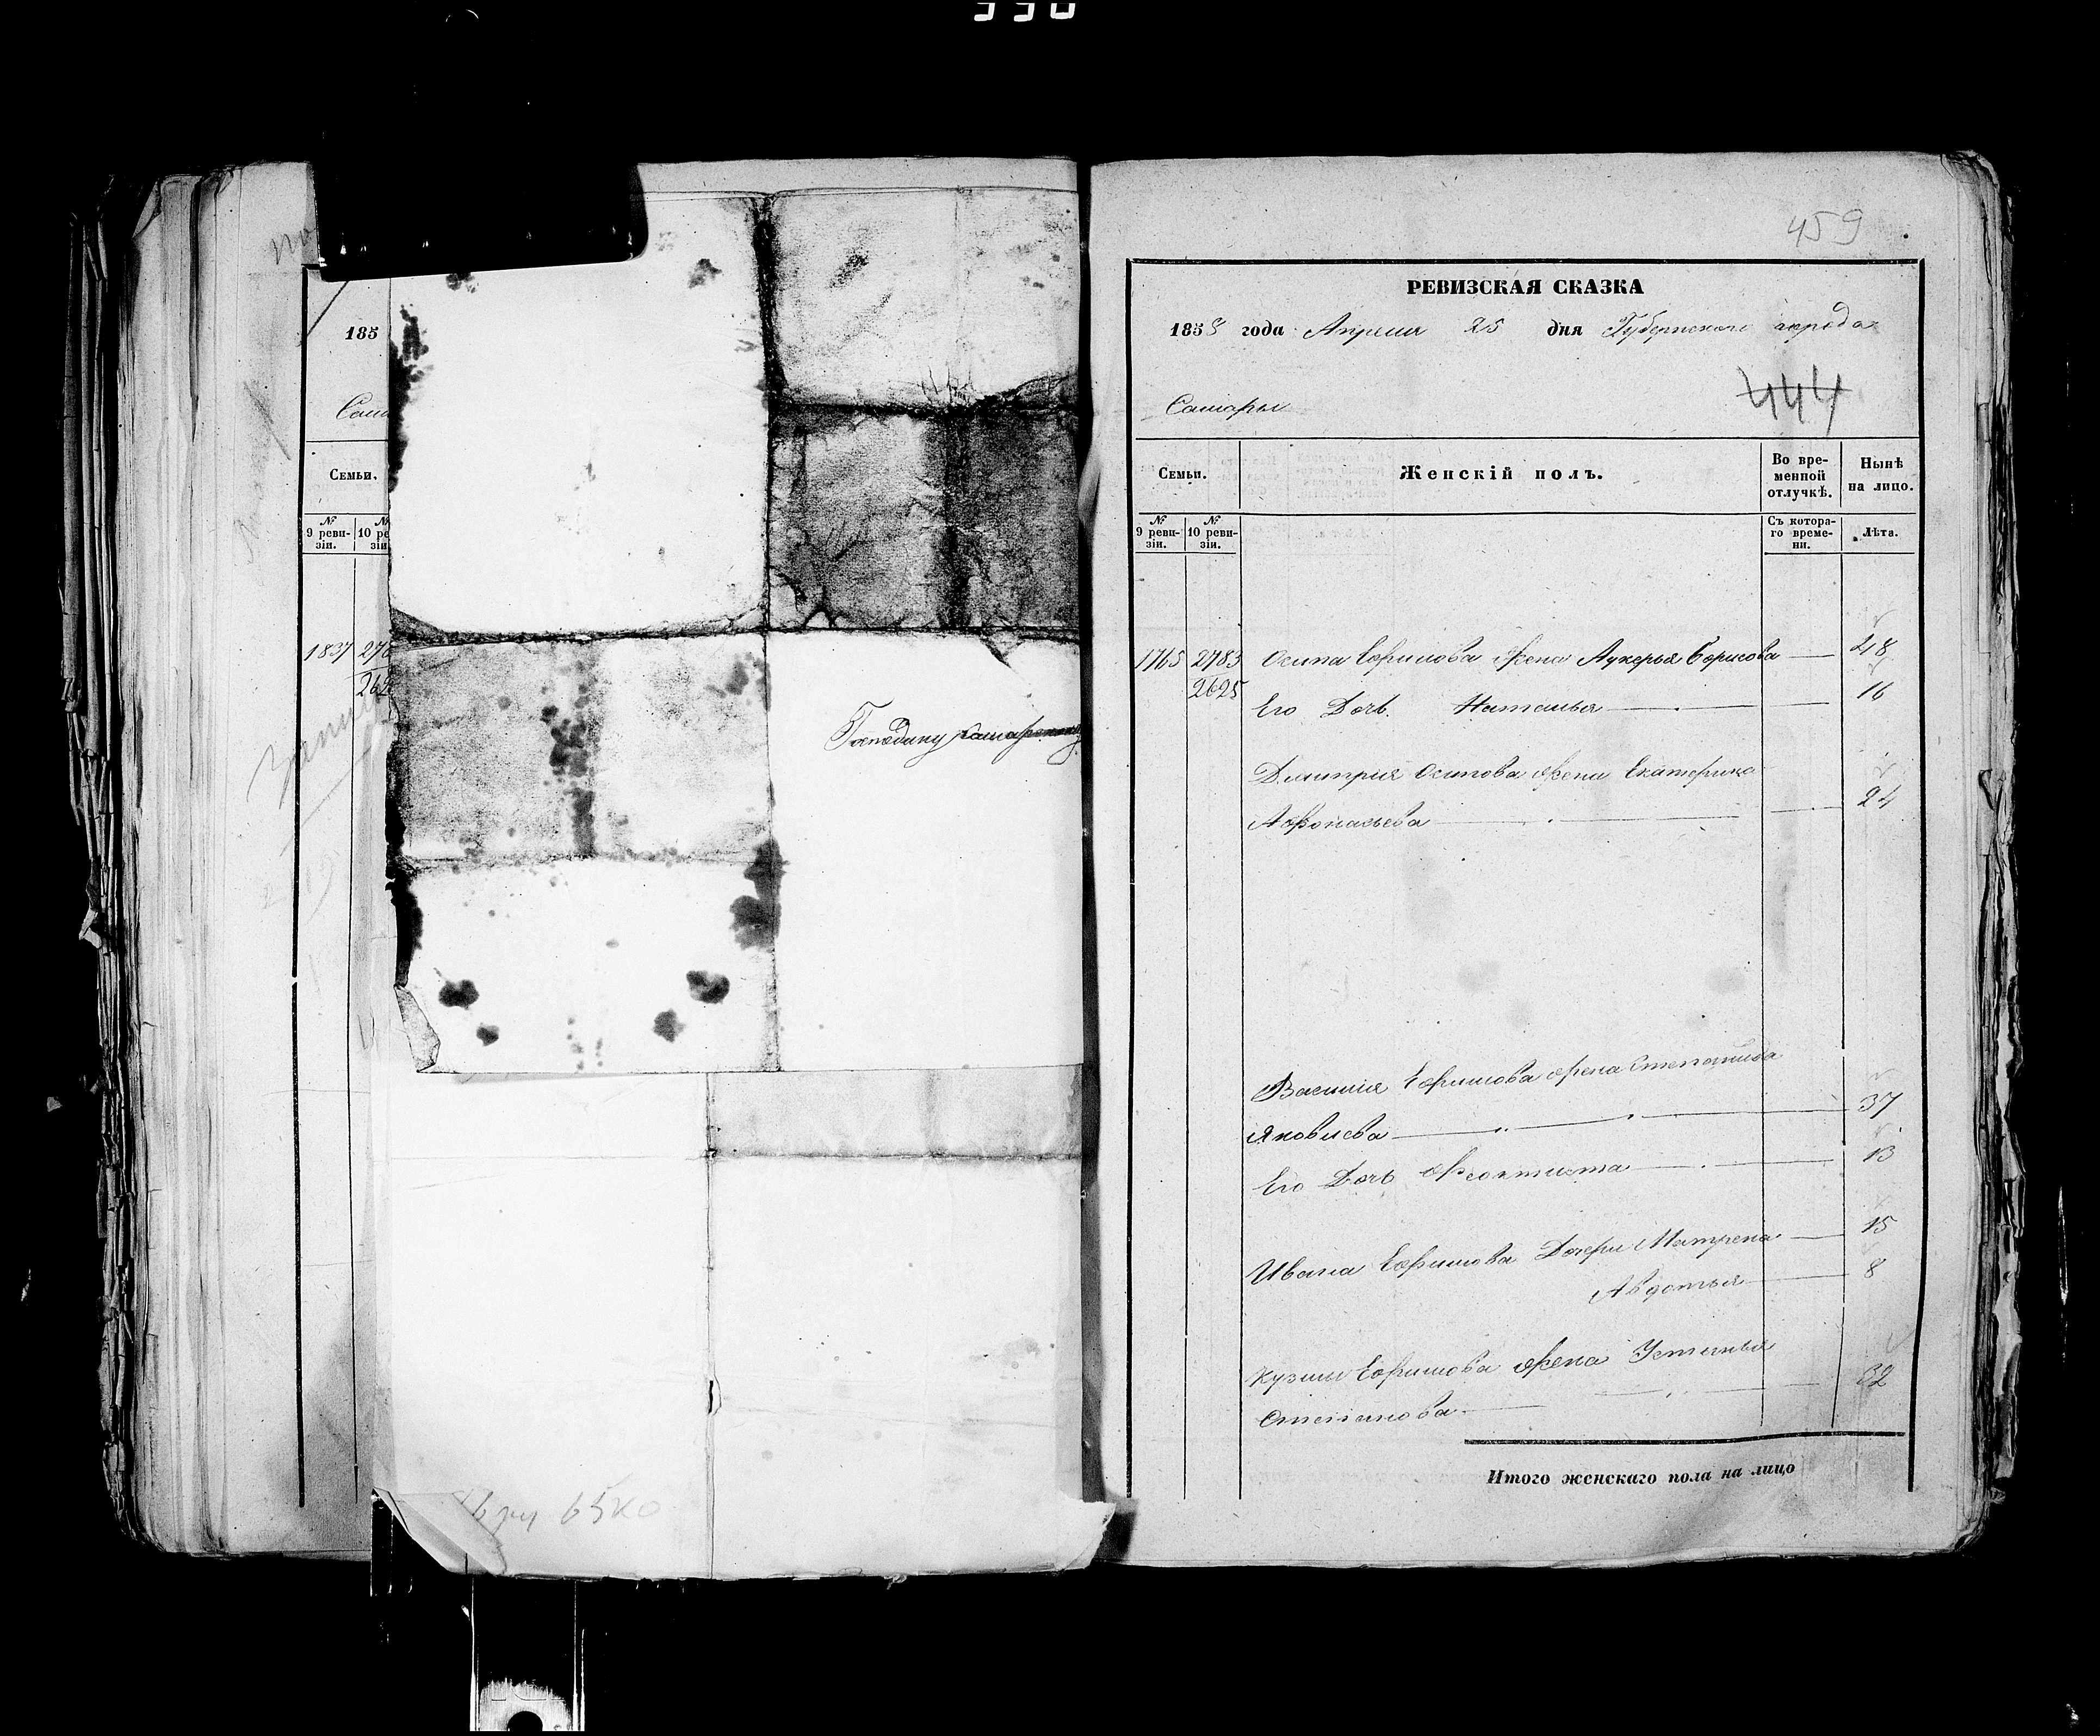 185
Сам
Семьи.
№ 9 реви-зіи. 10
1837
Господину Самарскому
459
РЕВИЗСКАЯ СКАЗКА
1858 года Апреля 25 дня Губернскаго города
444
Самары
Семьи.
Женскій полъ.
Во вре-менной отлучкѣ.
Нынѣ на лицо.
№ 9 реви-зіи.
№ 10 реви-зіи.
Съ котора-го време-ни.
Лѣта.
1765 2783 Осипа Ефимова жена Лукерья Борисова 48
2625 Его Дочь Наталья 16
Дмитрия Осипова жена Екатерина
Афонасьева 24
Василия Ефимова жена Степанида
Яковлева 37
Его Дочь Феоктиста 13
Ивана Ефимова Дочери Матрена 15
Авдотья 8
Кузмы Ефимова жена Устинья
Степанова 32
Итого женскаго пола на лицо